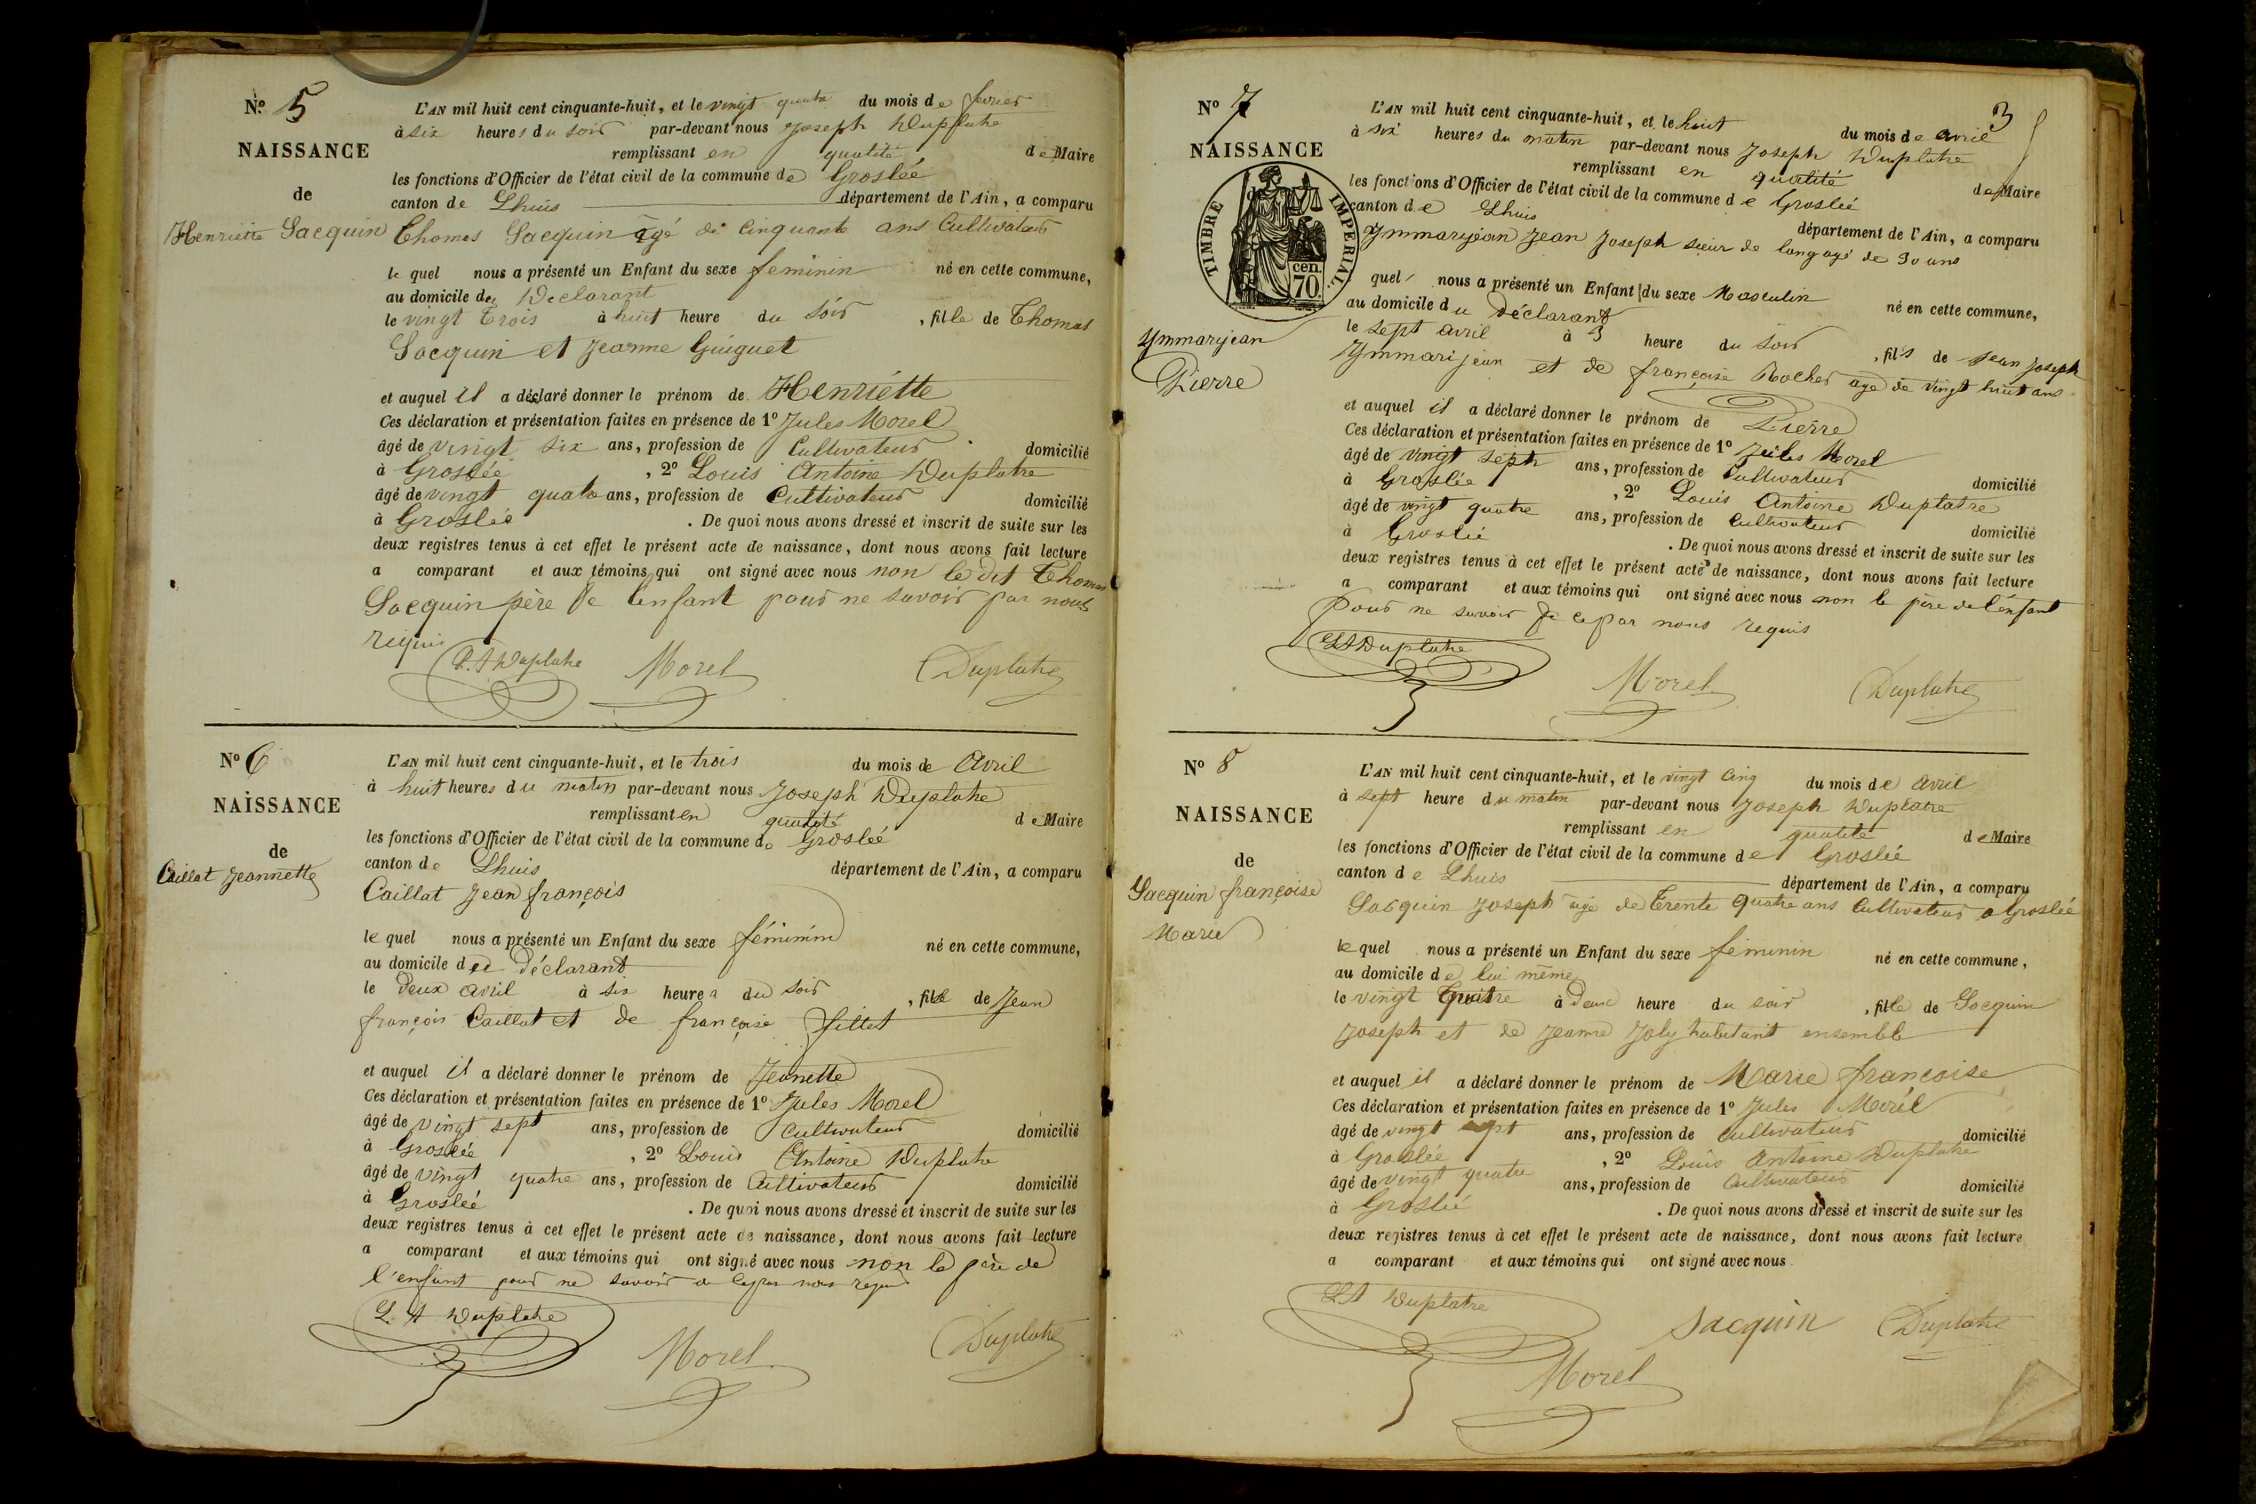 N.o 5
NAISSANCE
de
Henriette Sacquin
L'AN mil huit cent cinquante-huit, et le vingt quatre du mois de fevrier
à six heures du soir par-devant nous Joseph Duplatre
remplissant en qualité de Maire
les fonctions d'Officier de l'état civil de la commune de Groslée
canton de Lhuis département de l'Ain, a comparu
Thomas Sacquin âgé de cinquante ans Cultivateur
le quel nous a présenté un Enfant du sexe feminin né en cette commune,
au domicile du Declarant
le vingt trois à huit heure du soir, fille de Thomas
Sacquin et Jeanne Guiguet
et auquel il a déclaré donner le prénom de Henriétte
Ces déclaration et présentation faites en présence de 1o Jules Morel
âgé de vingt six ans, profession de Cultivateur domicilié
à Groslée, 2o Louis Antoine Duplatre
âgé de vingt quatre ans, profession de Cultivateur domicilié
à Groslée. De quoi nous avons dressé et inscrit de suite sur les
deux registres tenus à cet effet le présent acte de naissance, dont nous avons fait lecture
a comparant et aux témoins qui ont signé avec nous non le dit Thomas
Sacquin père de l'enfant pour ne savoir par nous
requis
L. A Duplatre Morel Duplatre
No 6
NAISSANCE
de
Caillat Jeannette
L'AN mil huit cent cinquante-huit, et le trois du mois de Avril
à huit heures du matin par-devant nous Joseph Duplatre
remplissant en qualité de Maire
les fonctions d'Officier de l'état civil de la commune de Groslée
canton de Lhuis département de l'Ain, a comparu
Caillat Jean françois
le quel nous a présenté un Enfant du sexe féminin né en cette commune,
au domicile du Déclarant
le deux avril à six heures du soir, fille de Jean
françois Caillat et de françoise fillet
et auquel il a déclaré donner le prénom de Jeanette
Ces déclaration et présentation faites en présence de 1o Jules Morel
âgé de vingt sept ans, profession de Cultivateur domicilié
à Groslée, 2o Louis Antoine Duplatre
âgé de vingt quatre ans, profession de Cultivateur domicilié
à Groslée. De quoi nous avons dressé et inscrit de suite sur les
deux registres tenus à cet effet le présent acte de naissance, dont nous avons fait lecture
a comparant et aux témoins qui ont signé avec nous non le père de
l'enfant pour ne savoir de ce par nous requis
L. A Duplatre Morel Duplatre
3
No 7
NAISSANCE
de
TIMBRE IMPERIAL.
70 cen.
Ymmarijean
Pierre
L'AN mil huit cent cinquante-huit, et le huit du mois de avril
à six heures du matin par-devant nous Joseph Duplatre
remplissant en qualité de Maire
les fonctions d'Officier de l'état civil de la commune de Groslée
canton de Lhuis département de l'Ain, a comparu
Ymmarijean Jean Joseph sieur de long agé de 30 ans
quel nous a présenté un Enfant du sexe Masculin né en cette commune,
au domicile du Déclarant
le sept avril à 3 heure du soir, fils de Jean Joseph
Ymmarijean et de françoise Rocher agé de vingt huit ans
et auquel il a déclaré donner le prénom de Pierre
Ces déclaration et présentation faites en présence de 1o Jules Morel
âgé de vingt septs ans, profession de Cultivateur domicilié
à Groslée, 2o Louis Antoine Duplatre
âgé de vingt quatre ans, profession de Cultivateur domicilié
à Groslée. De quoi nous avons dressé et inscrit de suite sur les
deux registres tenus à cet effet le présent acte de naissance, dont nous avons fait lecture
a comparant et aux témoins qui ont signé avec nous non le père de l'enfant
pour ne savoir de ce par nous requis
LA Duplatre Morel Duplatre
No 8
NAISSANCE
de
Sacquin françoise
Marie
L'AN mil huit cent cinquante-huit, et le vingt cinq du mois de avril
à sept heure du matin par-devant nous Joseph Duplatre
remplissant en qualité de Maire
les fonctions d'Officier de l'état civil de la commune de Groslée
canton de Lhuis département de l'Ain, a comparu
Sacquin Joseph agé de Trente quatre ans Cultivateur a Groslée
le quel nous a présenté un Enfant du sexe féminin né en cette commune,
au domicile de lui même
le vingt Quatre à Deux heure du soir, fille de Sacquin
Joseph et de Jeanne Joly habitant ensemble
et auquel il a déclaré donner le prénom de Marie françoise
Ces déclaration et présentation faites en présence de 1o Jules Morel
âgé de vingt sept ans, profession de Cultivateur domicilié
à Groslée, 2o Louis Antoine Duplatre
âgé de vingt quatre ans, profession de Cultivateur domicilié
à Groslée. De quoi nous avons dressé et inscrit de suite sur les
deux registres tenus à cet effet le présent acte de naissance, dont nous avons fait lecture
a comparant et aux témoins qui ont signé avec nous
LA Duplatre Sacquin Duplatre
Morel